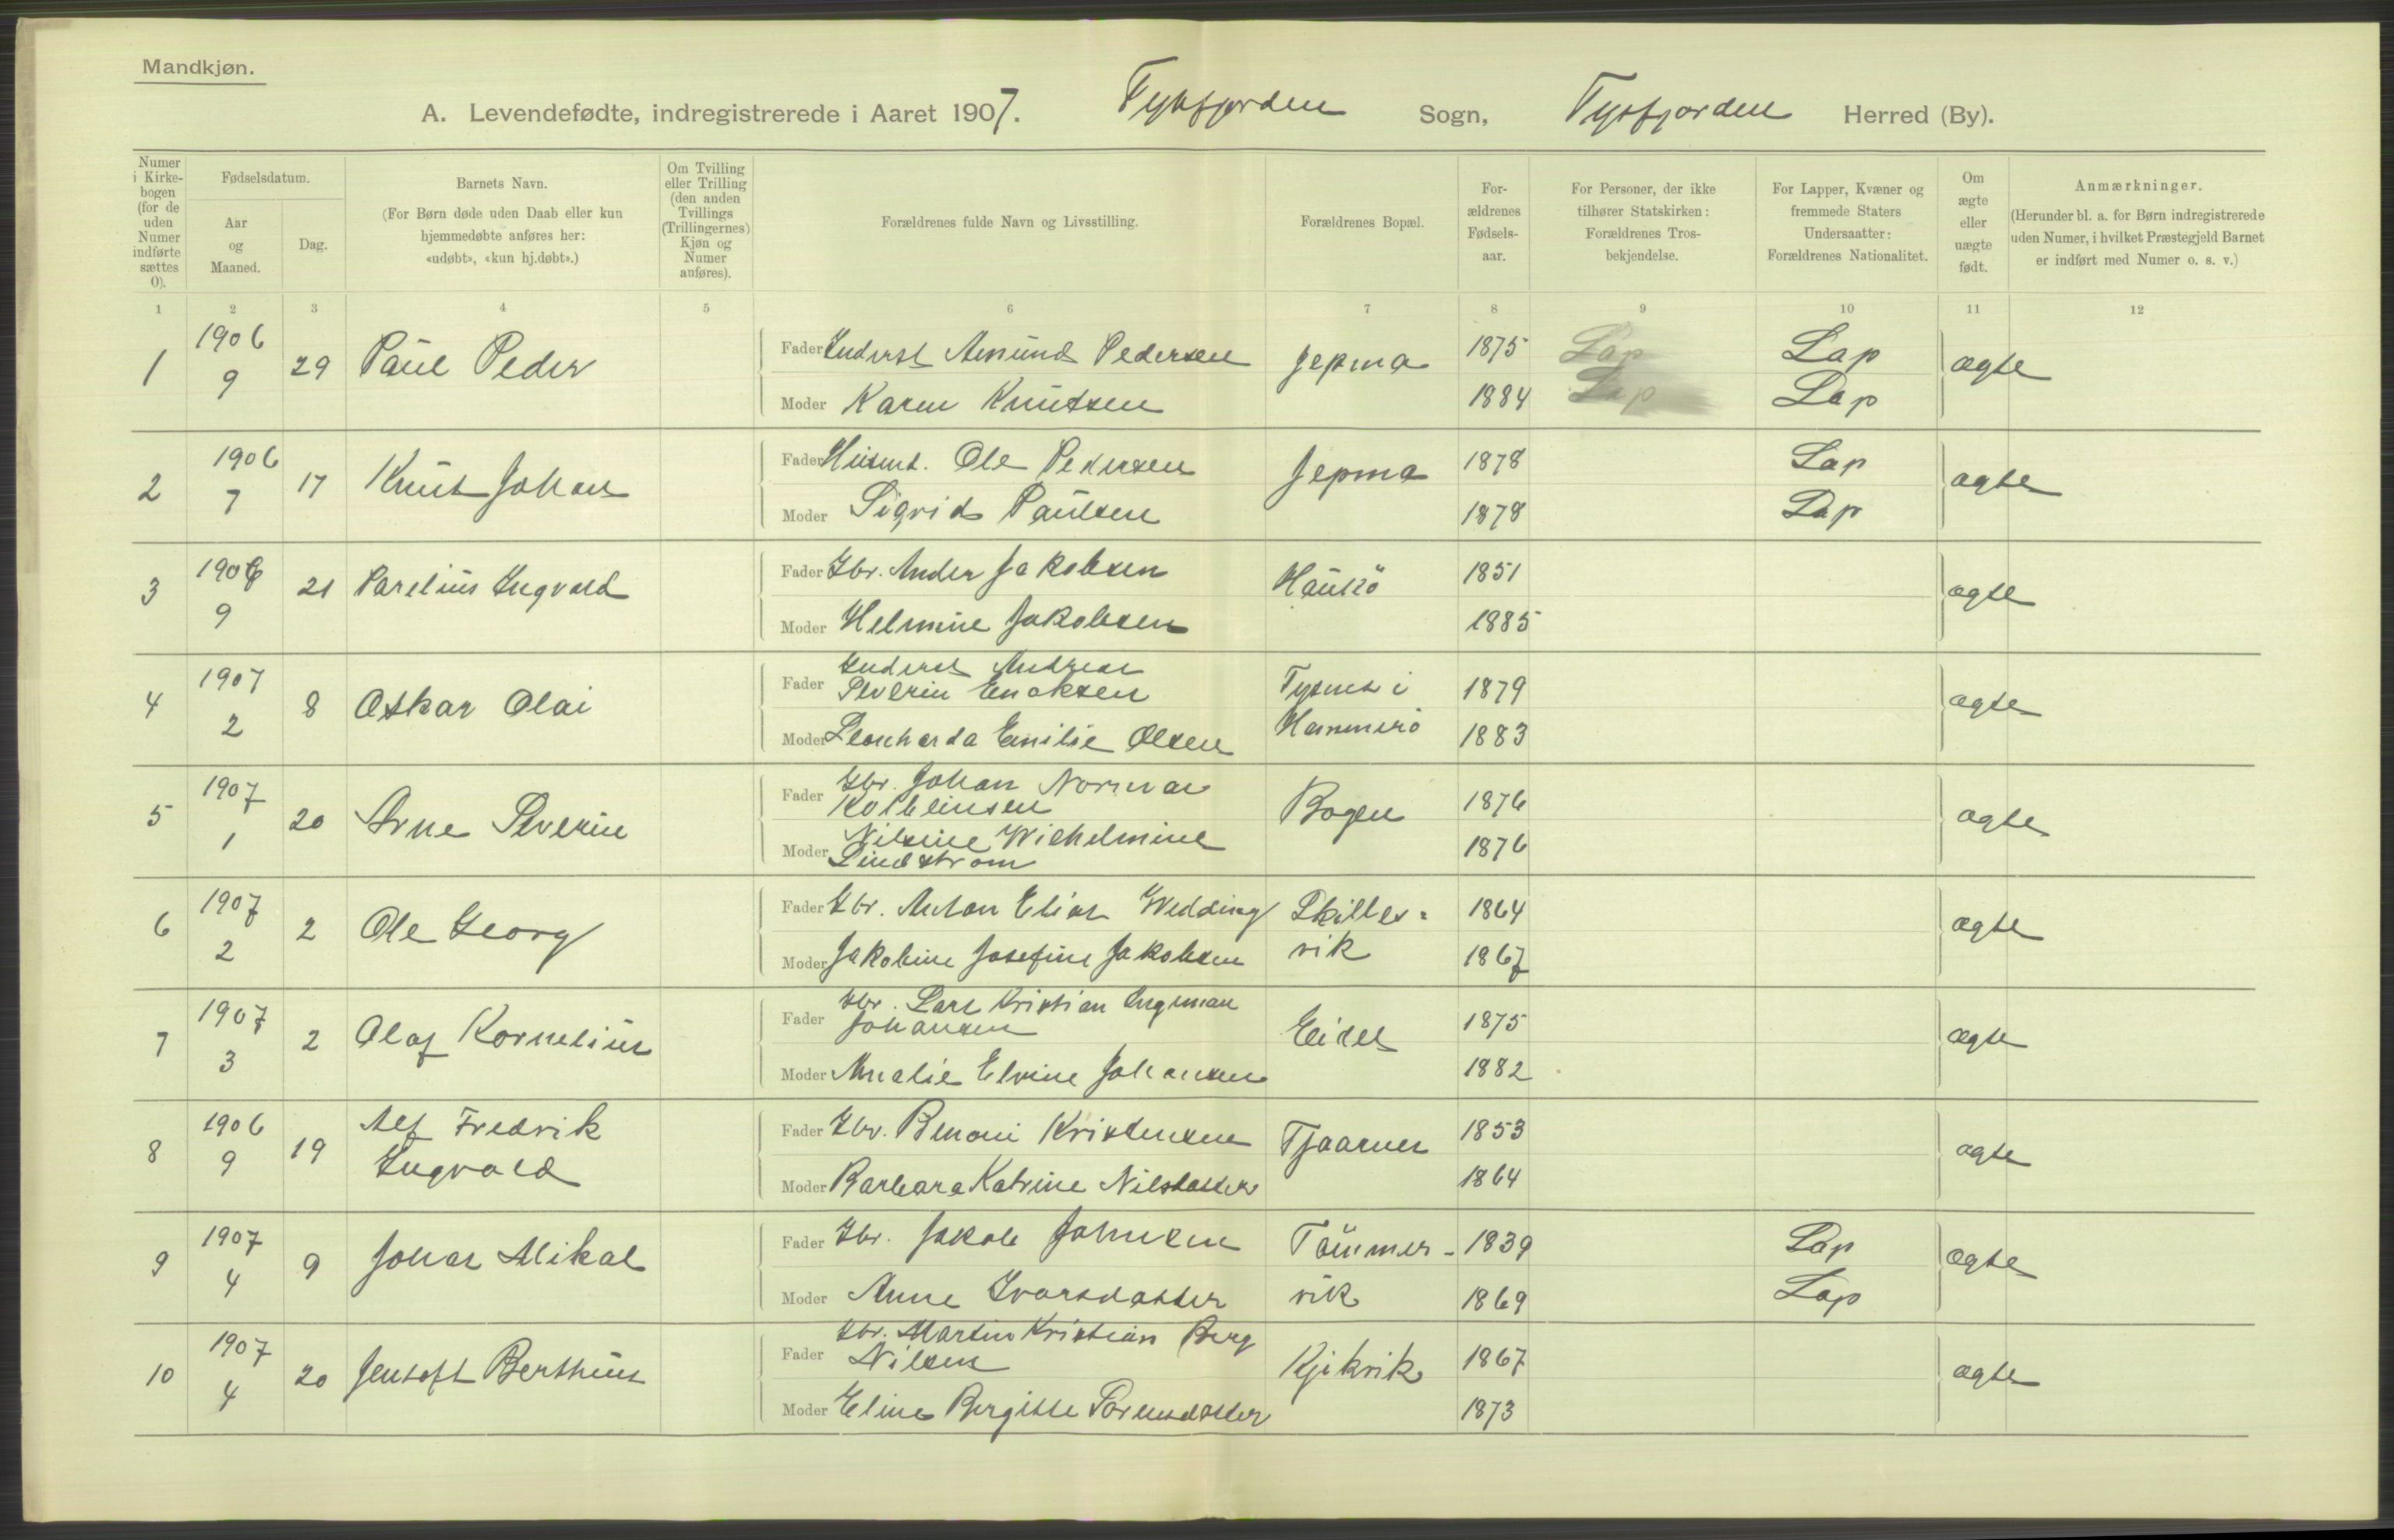 Mandkjøn.
A. Levendefødte, indregistrerede i Aaret 1907. Tysfjorden Sogn, Tysfjorden Herred (By).
Numer i Kirke- bogen (for de uden Numer indførte sættes 0).
Fødselsdatum.
Aar og Maaned.
Dag.
Barnets Navn.
(For Børn døde uden Daab eller kun hjemmedøbte anføres her: «udøbt», «kun hj.døbt».)
Om Tvilling eller Trilling (den anden Tvillings (Trillingernes) Kjøn og Numer anføres).
Forældrenes fulde Navn og Livsstilling.
Forældrenes Bopæl.
For- ældrenes Fødsels- aar.
For Personer, der ikke tilhører Statskirken: Forældrenes Tros- bekjendelse.
For Lapper, Kvæner og fremmede Staters Undersaatter: Forældrenes Nationalitet.
Om ægte eller uægte født.
Anmærkninger.
(Herunder bl. a. for Børn indregistrerede uden Numer, i hvilket Præstegjeld Barnet er indført med Numer o. s. v.)
1 2 3 4 5 6 7 8 9 10 11 12
1 1906 9 29 Paul Peder
Fader Inderst Amund Pedersen Jepma 1875 Lap Lap ægte
Moder Karen Knutsen 1884 Lap Lap
2 1906 7 17 Knut Johan
Fader Husmd. Ole Pedersen Jepma 1878 Lap ægte
Moder Sigrid Paulsen 1878 Lap
3 1906 9 21 Parelius Ingvald
Fader Gbr. Ander Jakobsen Haukö 1851 ægte
Moder Helmine Jakobsen 1885
4 1907 2 8 Oskar Olai
Fader Inderst Andreas
Severin Enoksen Tysnes i 1879 ægte
Moder Leonharda Emilie Olsen Hammerö 1883
5 1907 1 20 Arne Severin
Fader Gbr. Johan Norman
Kolbeinsen Bogen 1876 ægte
Moder Nilsine Wilhelmine
Lindstrøm 1876
6 1907 2 2 Ole Georg
Fader Gbr. Anton Elias Wedding Skilles- 1864 ægte
Moder Jakobine Josefine Jakobsen vik 1867
7 1907 3 2 Olaf Kornelius
Fader Gbr. Lars Kristian Ingman
Johansen Eidet 1875 ægte
Moder Amalie Elvine Johansen 1882
8 1906 9 19 Alf Fredrik
Ingvald
Fader Gbr. Benoni Kristensen Tjaarnes 1853 ægte
Moder Barbara Katrine Nilsdatter 1864
9 1907 4 9 Johan Mikal
Fader Gbr. Jakob Johnsen Tömmer- 1839 Lap ægte
Moder Anne Ivarsdatter vik 1869 Lap
10 1907 4 20 Jentoft Berthius
Fader Gbr. Martin Kristian Berg
Nilsen Kjikvik 1867 ægte
Moder Eline Bergitte Sörensdatter 1873